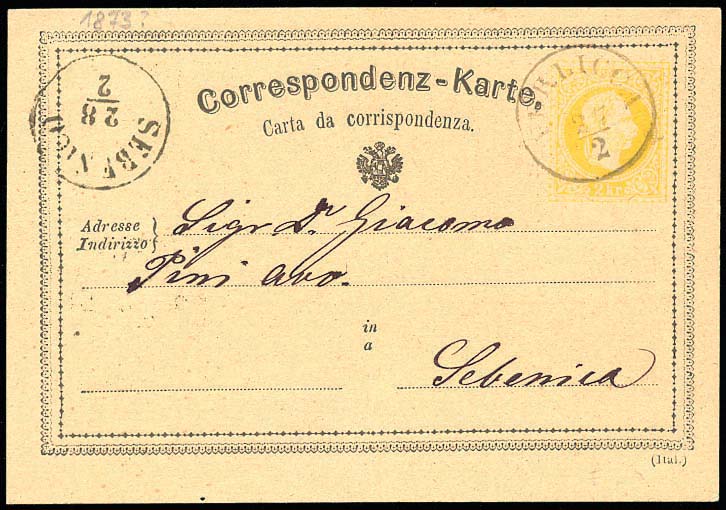 1873?
Correspondenz-Karte.
Carta da corrispondenza.
SEBENICO
28
2
27
2
2 kr.
Adresse
Indirizzo
Sigr Dr. Giacomo
Pini avo.
in
a
Sebenico
(Ital.)